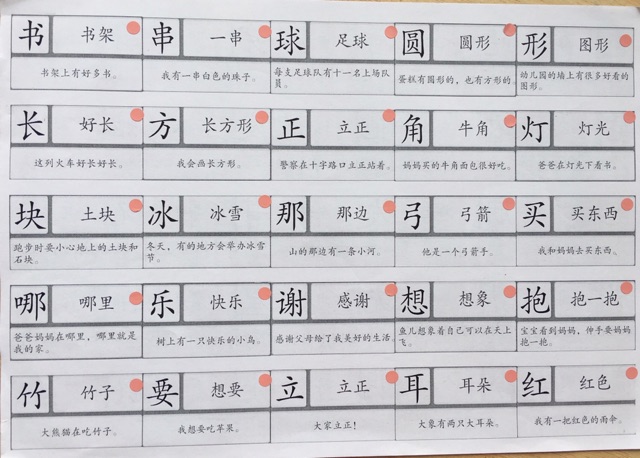 书 书架 串 一串 球 足球 圆 圆形 形 图形
书架上有好多书。 我有一串白色的珠子。 每支足球队有十一名上场队员。 蛋糕有圆形的，也有方形的。 幼儿园的墙上有很多好看的图形。
长 好长 方 长方形 正 立正 角 牛角 灯 灯光
这列火车好长好长。 我会画长方形。 警察在十字路口立正站着。 妈妈买的牛角面包很好吃。 爸爸在灯光下看书。
块 土块 冰 冰雪 那 那边 弓 弓箭 买 买东西
跑步时要小心地上的土块和石块。 冬天，有的地方会举办冰雪节。 山的那边有一条小河。 他是一个弓箭手。 我和妈妈去买东西。
哪 哪里 乐 快乐 谢 感谢 想 想象 抱 抱一抱
爸爸妈妈在哪里，哪里就是我的家。 树上有一只快乐的小鸟。 感谢父母给了我美好的生活 鱼儿想象着自己可以在天上飞。 宝宝看到妈妈，伸手要妈妈抱一抱。
竹 竹子 要 想要 立 立正 耳 耳朵 红 红色
大熊猫在吃竹子。 我想要吃苹果。 大家立正！ 大象有两只大耳朵。 我有一把红色的雨伞。